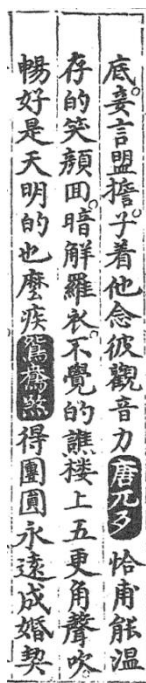 底。妾言盟擔。子着他念彼觀音力唐兀歹恰甫能溫
存的笑顏回。暗解羅衣。不覺的譙楼上五更角聲吹。
暢好是天明的也麼疾鴛鴦煞得團圓永遠成婚契